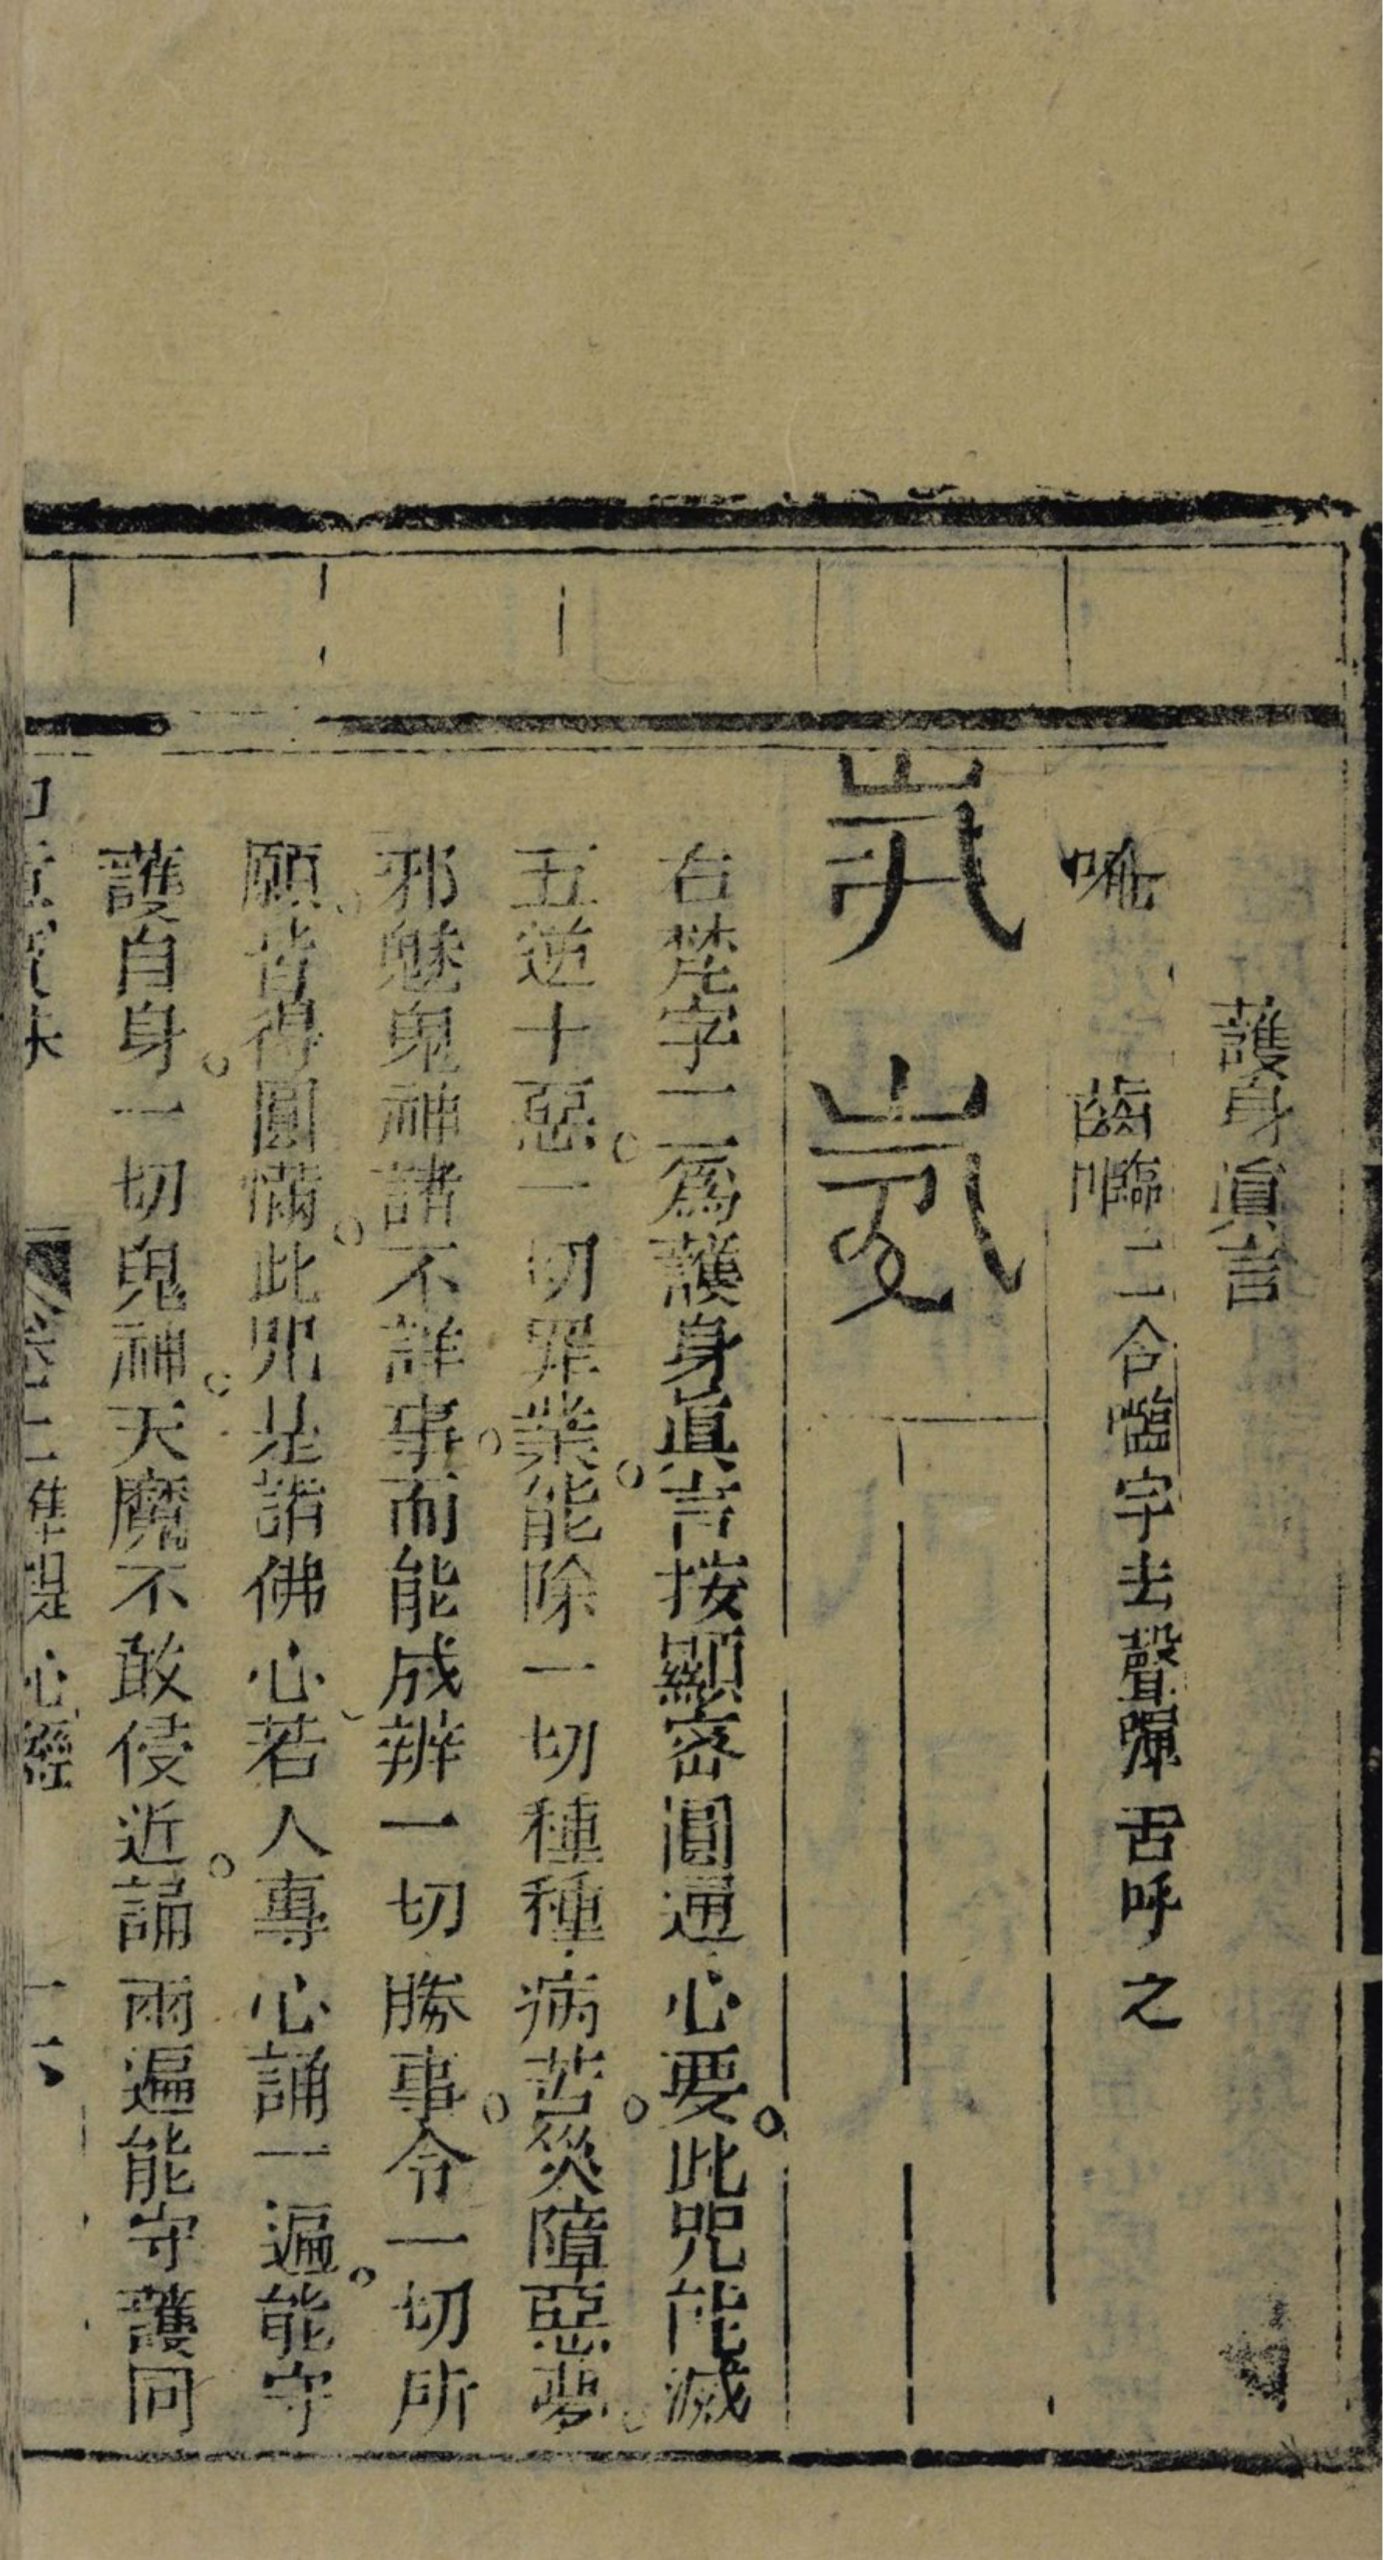 護身眞言
唵 齒𡄦二合𡄦字去聲彈舌呼之
右梵字一二爲護身眞言按顯密圓通心要。此咒能滅
五逆十惡。一切罪業。能除一切種種病苦。災障惡夢。
邪魅鬼神諸不詳事。而能成辨一切勝事。令一切所
願。皆得圓滿。此咒是諸佛心。若人專心誦一遍。能守
護自身。一切鬼神。天魔不敢侵近。誦兩遍能守護同
卷二準提心經 十六